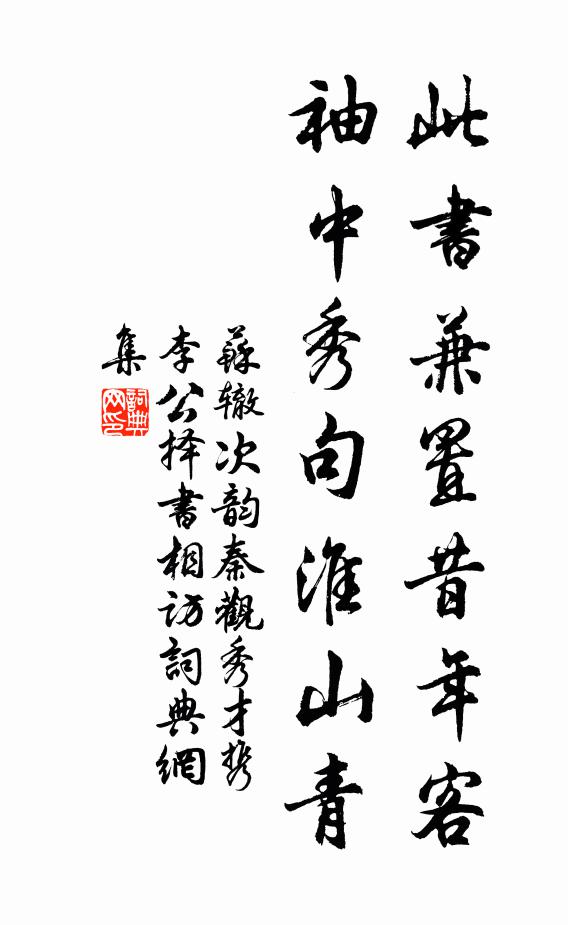 此書兼置昔年客
袖中秀句淮山青
蘇辙次韵秦觀秀才携
李公择書相访詞典網
集
詞典网印